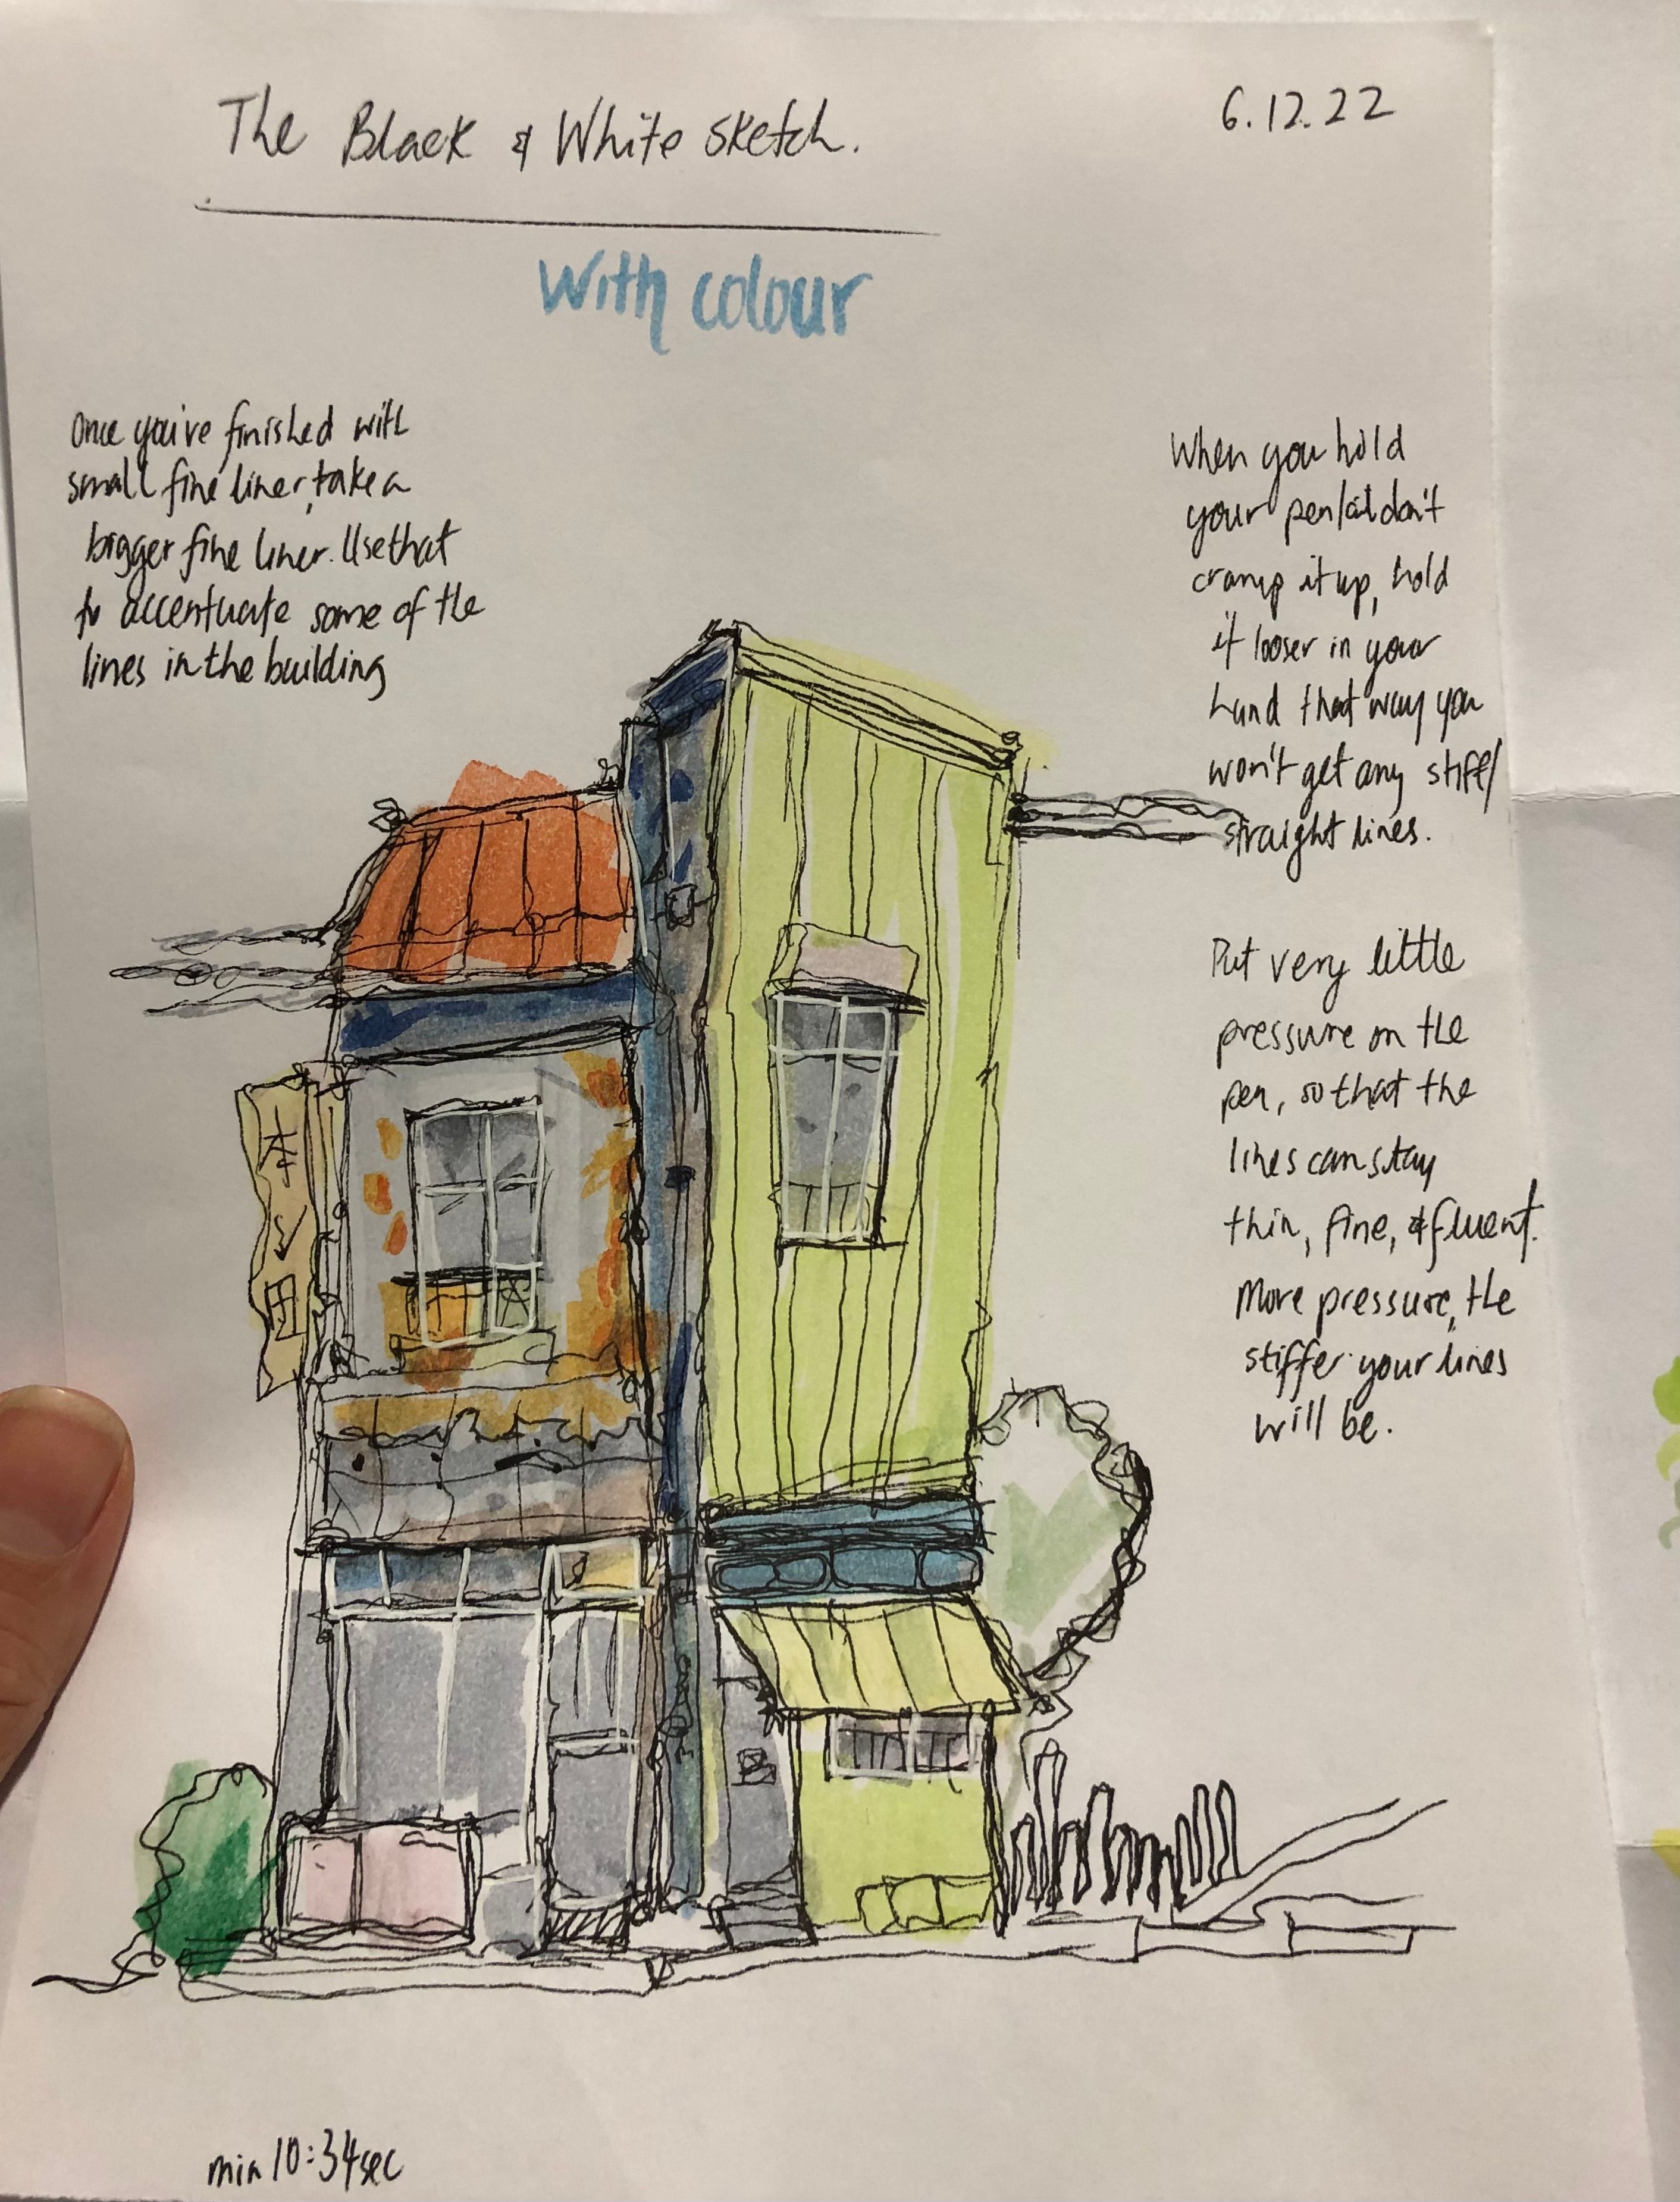 The Black & White sketch.
6.12.22
With colour
Once you've finished with
small fine liner, take a
bigger fine liner. Use that
to accentuate some of the
lines in the building
When you hold
your pen/cil don't
cramp it up, hold
it looser in your
hand that way you
won't get any stiff/
straight lines.
Put very little
pressure on the
pen, so that the
lines can stay
thin, fine, & fluent.
More pressure, the
stiffer your lines
will be.
本
min 10:34sec